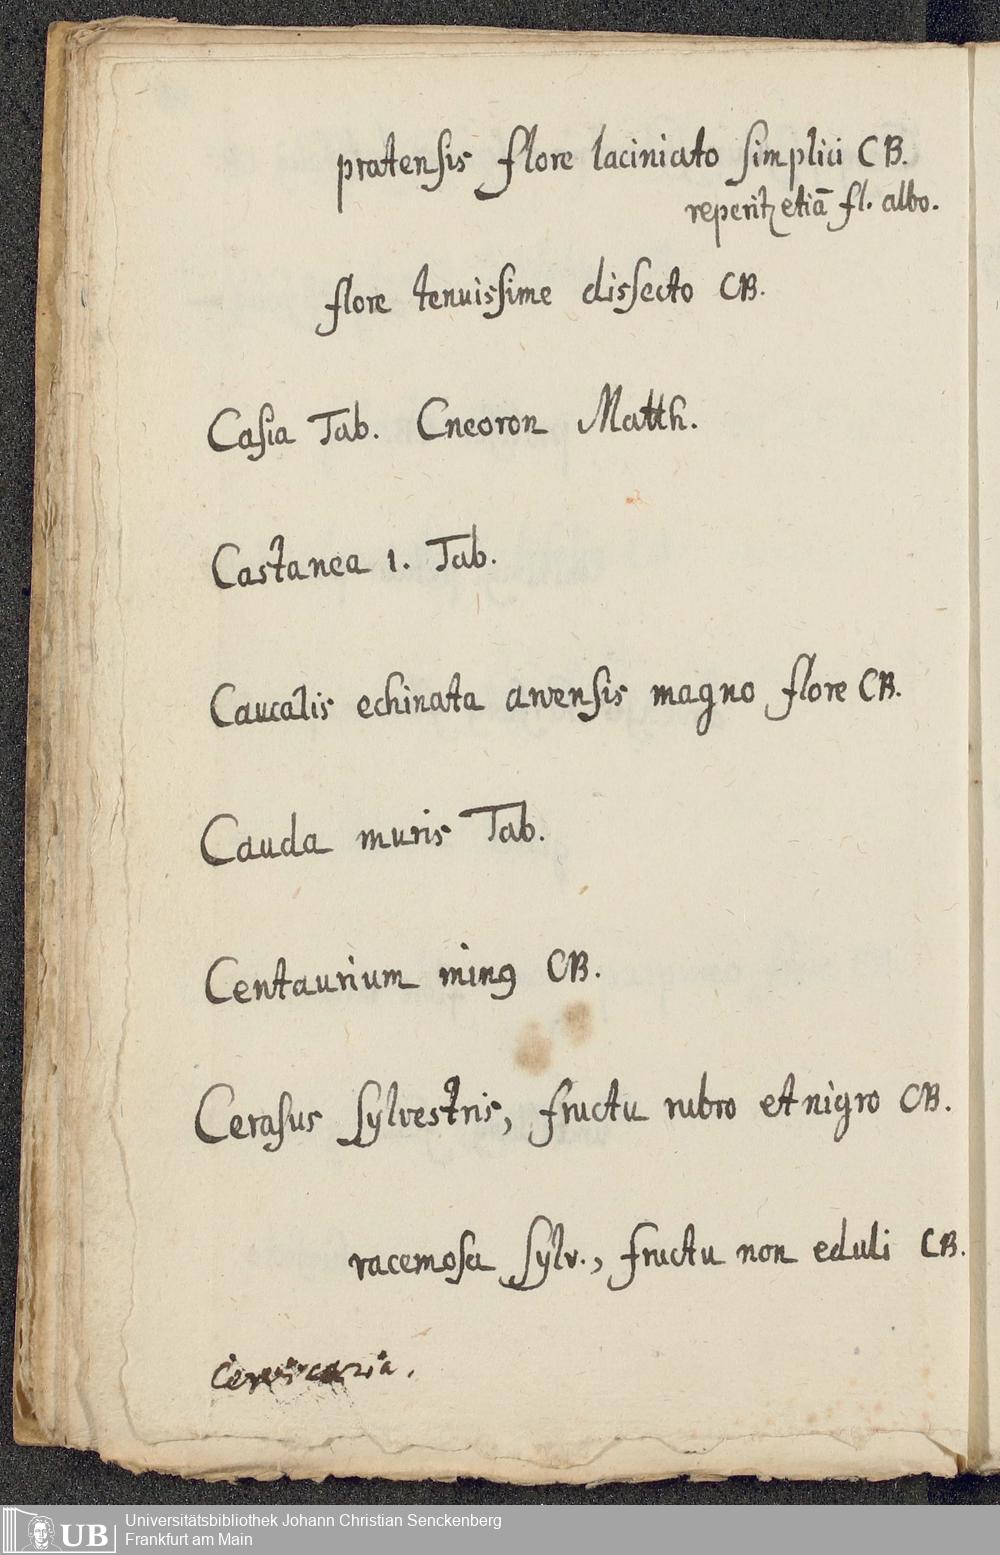 pratensis flore laciniato simplici CB.
reperitꝫ etiā fl. albo.
flore tenuissime dissecto CB.
Casia Tab. Cneoron Matth.
Castanea 1. Tab.
Caucalis echinata arvensis magno flore CB.
Cauda muris Tab.
Centaurium minꝰ CB.
Cerasus sylvestris, fructu rubro et nigro CB.
racemosa sylv., fructu non eduli CB.
Cervicaria.
UB
Universitätsbibliothek Johann Christian Senckenberg
Frankfurt am Main